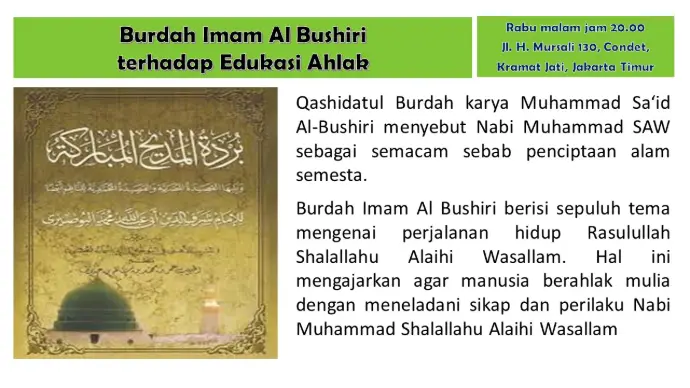 Burdah Imam Al Bushiri
terhadap Edukasi Ahlak
Rabu malam jam 20.00
Jl. H. Mursali 130, Condet,
Kramat Jati, Jakarta Timur
بردة المديح المباركة
للإمام شرف الدين أبي عبد الله محمد البوصيري
Qashidatul Burdah karya Muhammad Sa‘id
Al-Bushiri menyebut Nabi Muhammad SAW
sebagai semacam sebab penciptaan alam
semesta.
Burdah Imam Al Bushiri berisi sepuluh tema
mengenai perjalanan hidup Rasulullah
Shalallahu Alaihi Wasallam. Hal ini
mengajarkan agar manusia berahlak mulia
dengan meneladani sikap dan perilaku Nabi
Muhammad Shalallahu Alaihi Wasallam